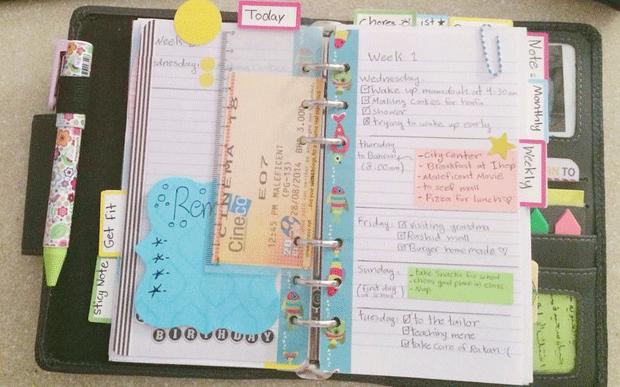 Today
Chores
1st
Note
Monthly
Weekly
Get Fit
Sticy Note
Week
Wednesday:
CINEMA 18
E07
12:45 PM MALEFICENT
(PG-13)
28/08/2014 BHD 3.000
Cineco
20
Rem
BIRTHDAY
Week 1
Wednesday
Wake up mamdouh at 4:30am
Making Cookies for
Shower
trying to wake up early
Thursday
to Bahrain
(8:00am)
- City Center
- Breakfast at Ihop
- Maleficent Movie
- to seef mall
- Pizza for lunch
Friday: Visiting grandma
Rashid mall
Burger home made
Sunday:
(first day
of school)
- take Snacks for school
- chose good place in class
- Nap
Tuesday: to the tailor
teaching mene
take care of Rakan :(
TO